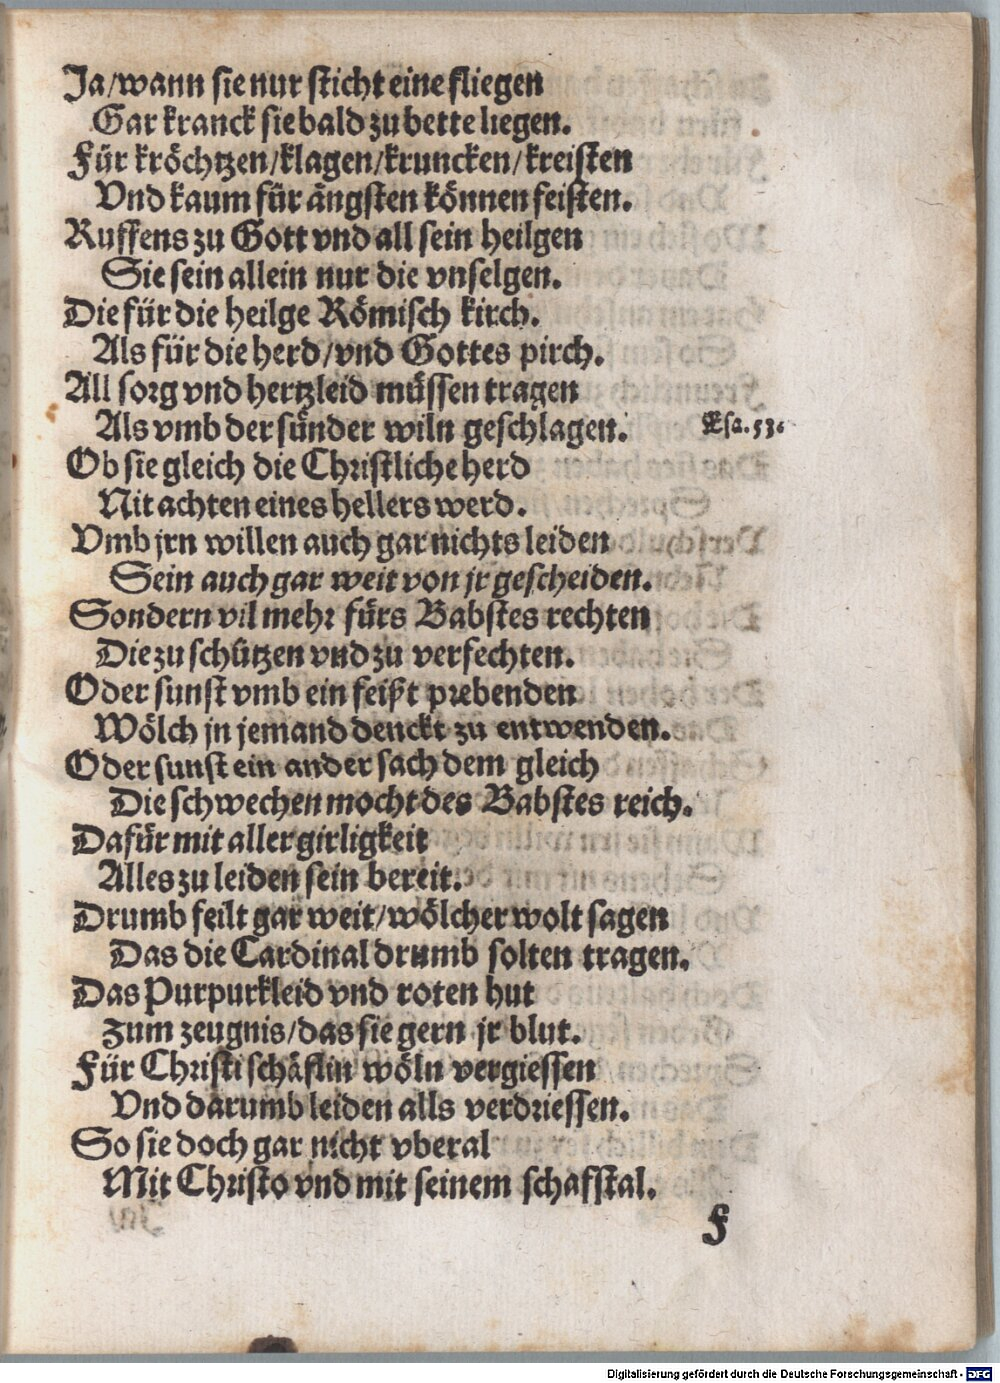 Ja/wann sie nur sticht eine fliegen
Gar kranck sie bald zu bette liegen.
Für kröchtzen/klagen/kruncken/kreisten
Vnd kaum für ängsten können feisten.
Ruffens zu Gott vnd all sein heilgen
Sie sein allein nur die vnselgen.
Die für die heilge Römisch kirch.
Als für die herd/vnd Gottes pirch.
All sorg vnd hertzleid müssen tragen
Als vmb der sünder wiln geschlagen. Esa. 53.
Ob sie gleich die Christliche herd
Nit achten eines hellers werd.
Vmb jrn willen auch gar nichts leiden
Sein auch gar weit von jr gescheiden.
Sondern vil mehr fürs Babstes rechten
Die zu schützen vnd zu verfechten.
Oder sunst vmb ein feißt prebenden
Wölch jn jemand denckt zu entwenden.
Oder sunst ein ander sach dem gleich
Die schwechen mocht des Babstes reich.
Dafür mit aller girligkeit
Alles zu leiden sein bereit.
Drumb feilt gar weit/wölcher wolt sagen
Das die Cardinal drumb solten tragen.
Das Purpurkleid vnd roten hut
Zum zeugnis/das sie gern jr blut.
Für Christi schäflin wöln vergiessen
Vnd darumb leiden alls verdriessen.
So sie doch gar nicht vberal
Mit Christo vnd mit seinem schafstal.
F
Digitalisierung gefördert durch die Deutsche Forschungsgemeinschaft - DFG